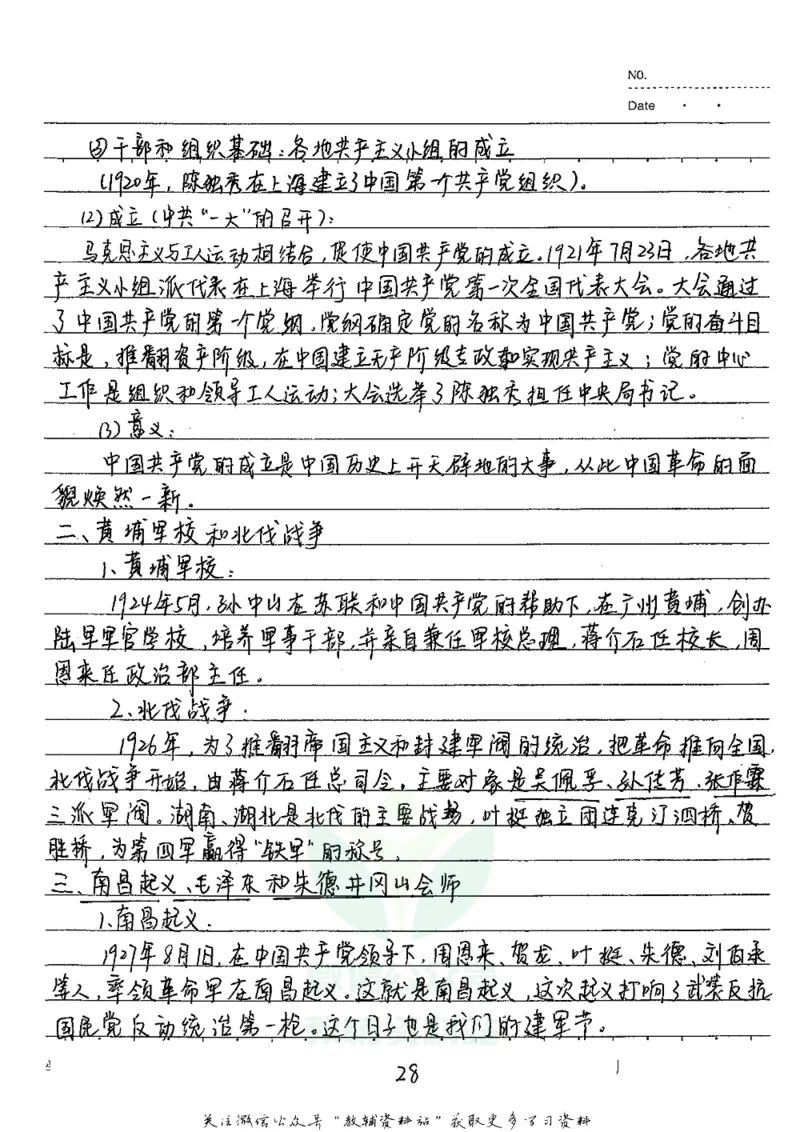 NO.
Date
④干部和组织基础:各地共产主义小组的成立
(1920年,陈独秀在上海建立了中国第一个共产党组织)。
(2)成立(中共“一大”的召开):
马克思主义与工人运动相结合,促使中国共产党的成立。1921年7月23日,各地共
产主义小组派代表在上海举行中国共产党第一次全国代表大会。大会通过
了中国共产党的第一个党纲,党纲确定党的名称为中国共产党;党的奋斗目
标是,推翻资产阶级,在中国建立无产阶级专政和实现共产主义;党的中心
工作是组织和领导工人运动;大会选举了陈独秀担任中央局书记。
(3)意义:
中国共产党的成立是中国历史上开天辟地的大事,从此中国革命的面
貌焕然一新。
二、黄埔军校和北伐战争
1、黄埔军校:
1924年5月,孙中山在苏联和中国共产党的帮助下,在广州黄埔,创办
陆军军官学校,培养军事干部,并亲自兼任军校总理,蒋介石任校长,周
恩来任政治部主任。
2、北伐战争:
1926年,为了推翻帝国主义和封建军阀的统治,把革命推向全国,
北伐战争开始,由蒋介石任总司令。主要对象是吴佩孚、孙传芳、张作霖
三派军阀。湖南、湖北是北伐的主要战场,叶挺独立团连克汀泗桥、贺
胜桥,为第四军赢得“铁军”的称号。
三、南昌起义、毛泽东和朱德井冈山会师
1、南昌起义:
1927年8月1日,在中国共产党领导下,周恩来、贺龙、叶挺、朱德、刘伯承
等人,率领革命军在南昌起义。这就是南昌起义,这次起义打响了武装反抗
国民党反动统治第一枪。这个日子也是我们的建军节。
28
关注微信公众号“教辅资料站”获取更多学习资料